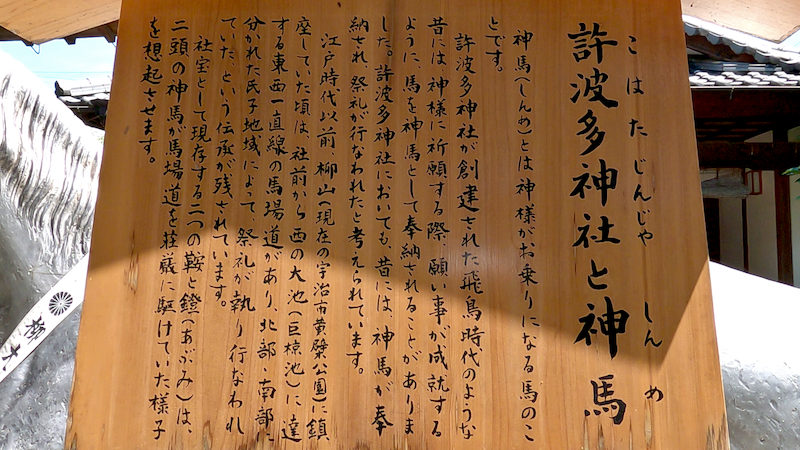 こはたじんじゃ しんめ
許波多神社と神馬
神馬(しんめ)とは神様がお乗りになる馬のこ
とです。
許波多神社が創建された飛鳥時代のような
昔には、神様に祈願する際、願い事が成就する
ように、馬を神馬として奉納されることがありま
した。許波多神社においても、昔には、神馬が奉
納され、祭礼が行なわれたと考えられています。
江戸時代以前、柳山(現在の宇治市黄檗公園)に鎮
座していた頃は、社前から西の大池(巨椋池)に達
する東西一直線の馬場道があり、北部・南部、
分かれた氏子地域によって、祭礼が執り行なわれ
ていた、という伝承が残されています。
社宝として現存する二つの鞍と鐙(あぶみ)は、
二頭の神馬が馬場道を荘厳に駆けていた様子
を想起させます。
柳大